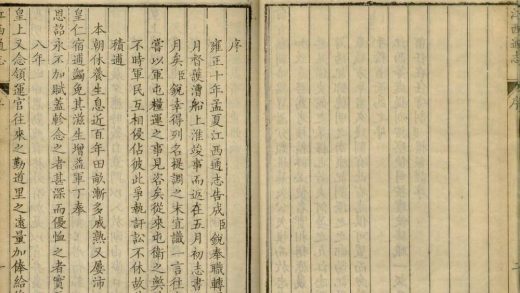 江西通志
序
二
序
雍正十年孟夏江西通志告成臣銳奉職轉
月督護漕船上淮竣事而返在五月初志書
月矣臣銳幸得列名提調之末宜識一言往
嘗以軍屯糧運之事見咨矣從來屯衛之
不時軍民互相侵佔彼此爭執訐訟不休故
積逋
本朝休養生息近百年田畝漸多成熟又屢沛
皇仁宿逋蠲免其滋生增益軍丁奉
恩詔永不加賦蓋軫念之者甚深而優恤之者實
八年
皇上又念領運官往來之勤道里之遠量加俸給
江西通志
序
一